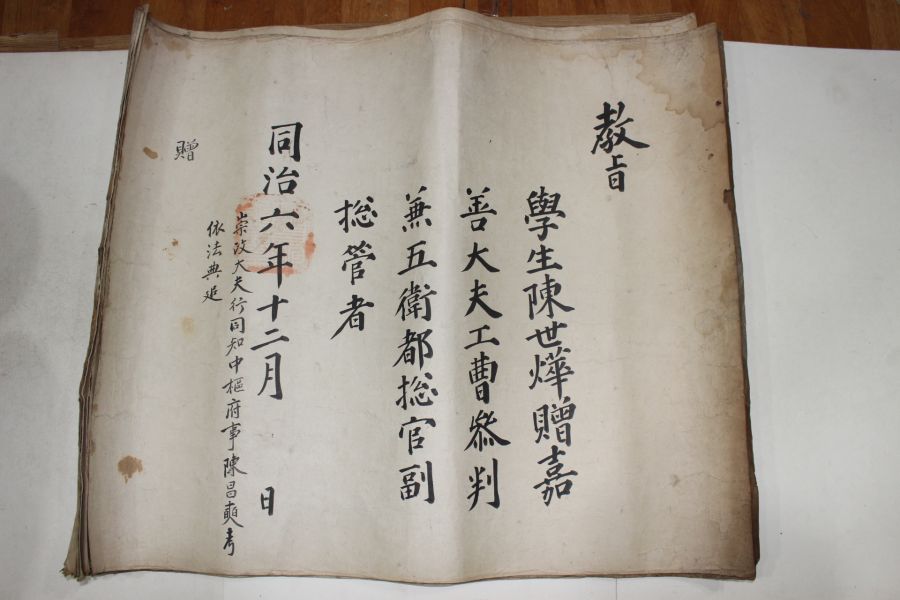 教旨
學生陳世燁贈嘉
善大夫工曹叅判
兼五衛都総官副
総管者
同治六年十二月 日
崇政大夫行同知中樞府事陳昌奭考
依法典追
贈